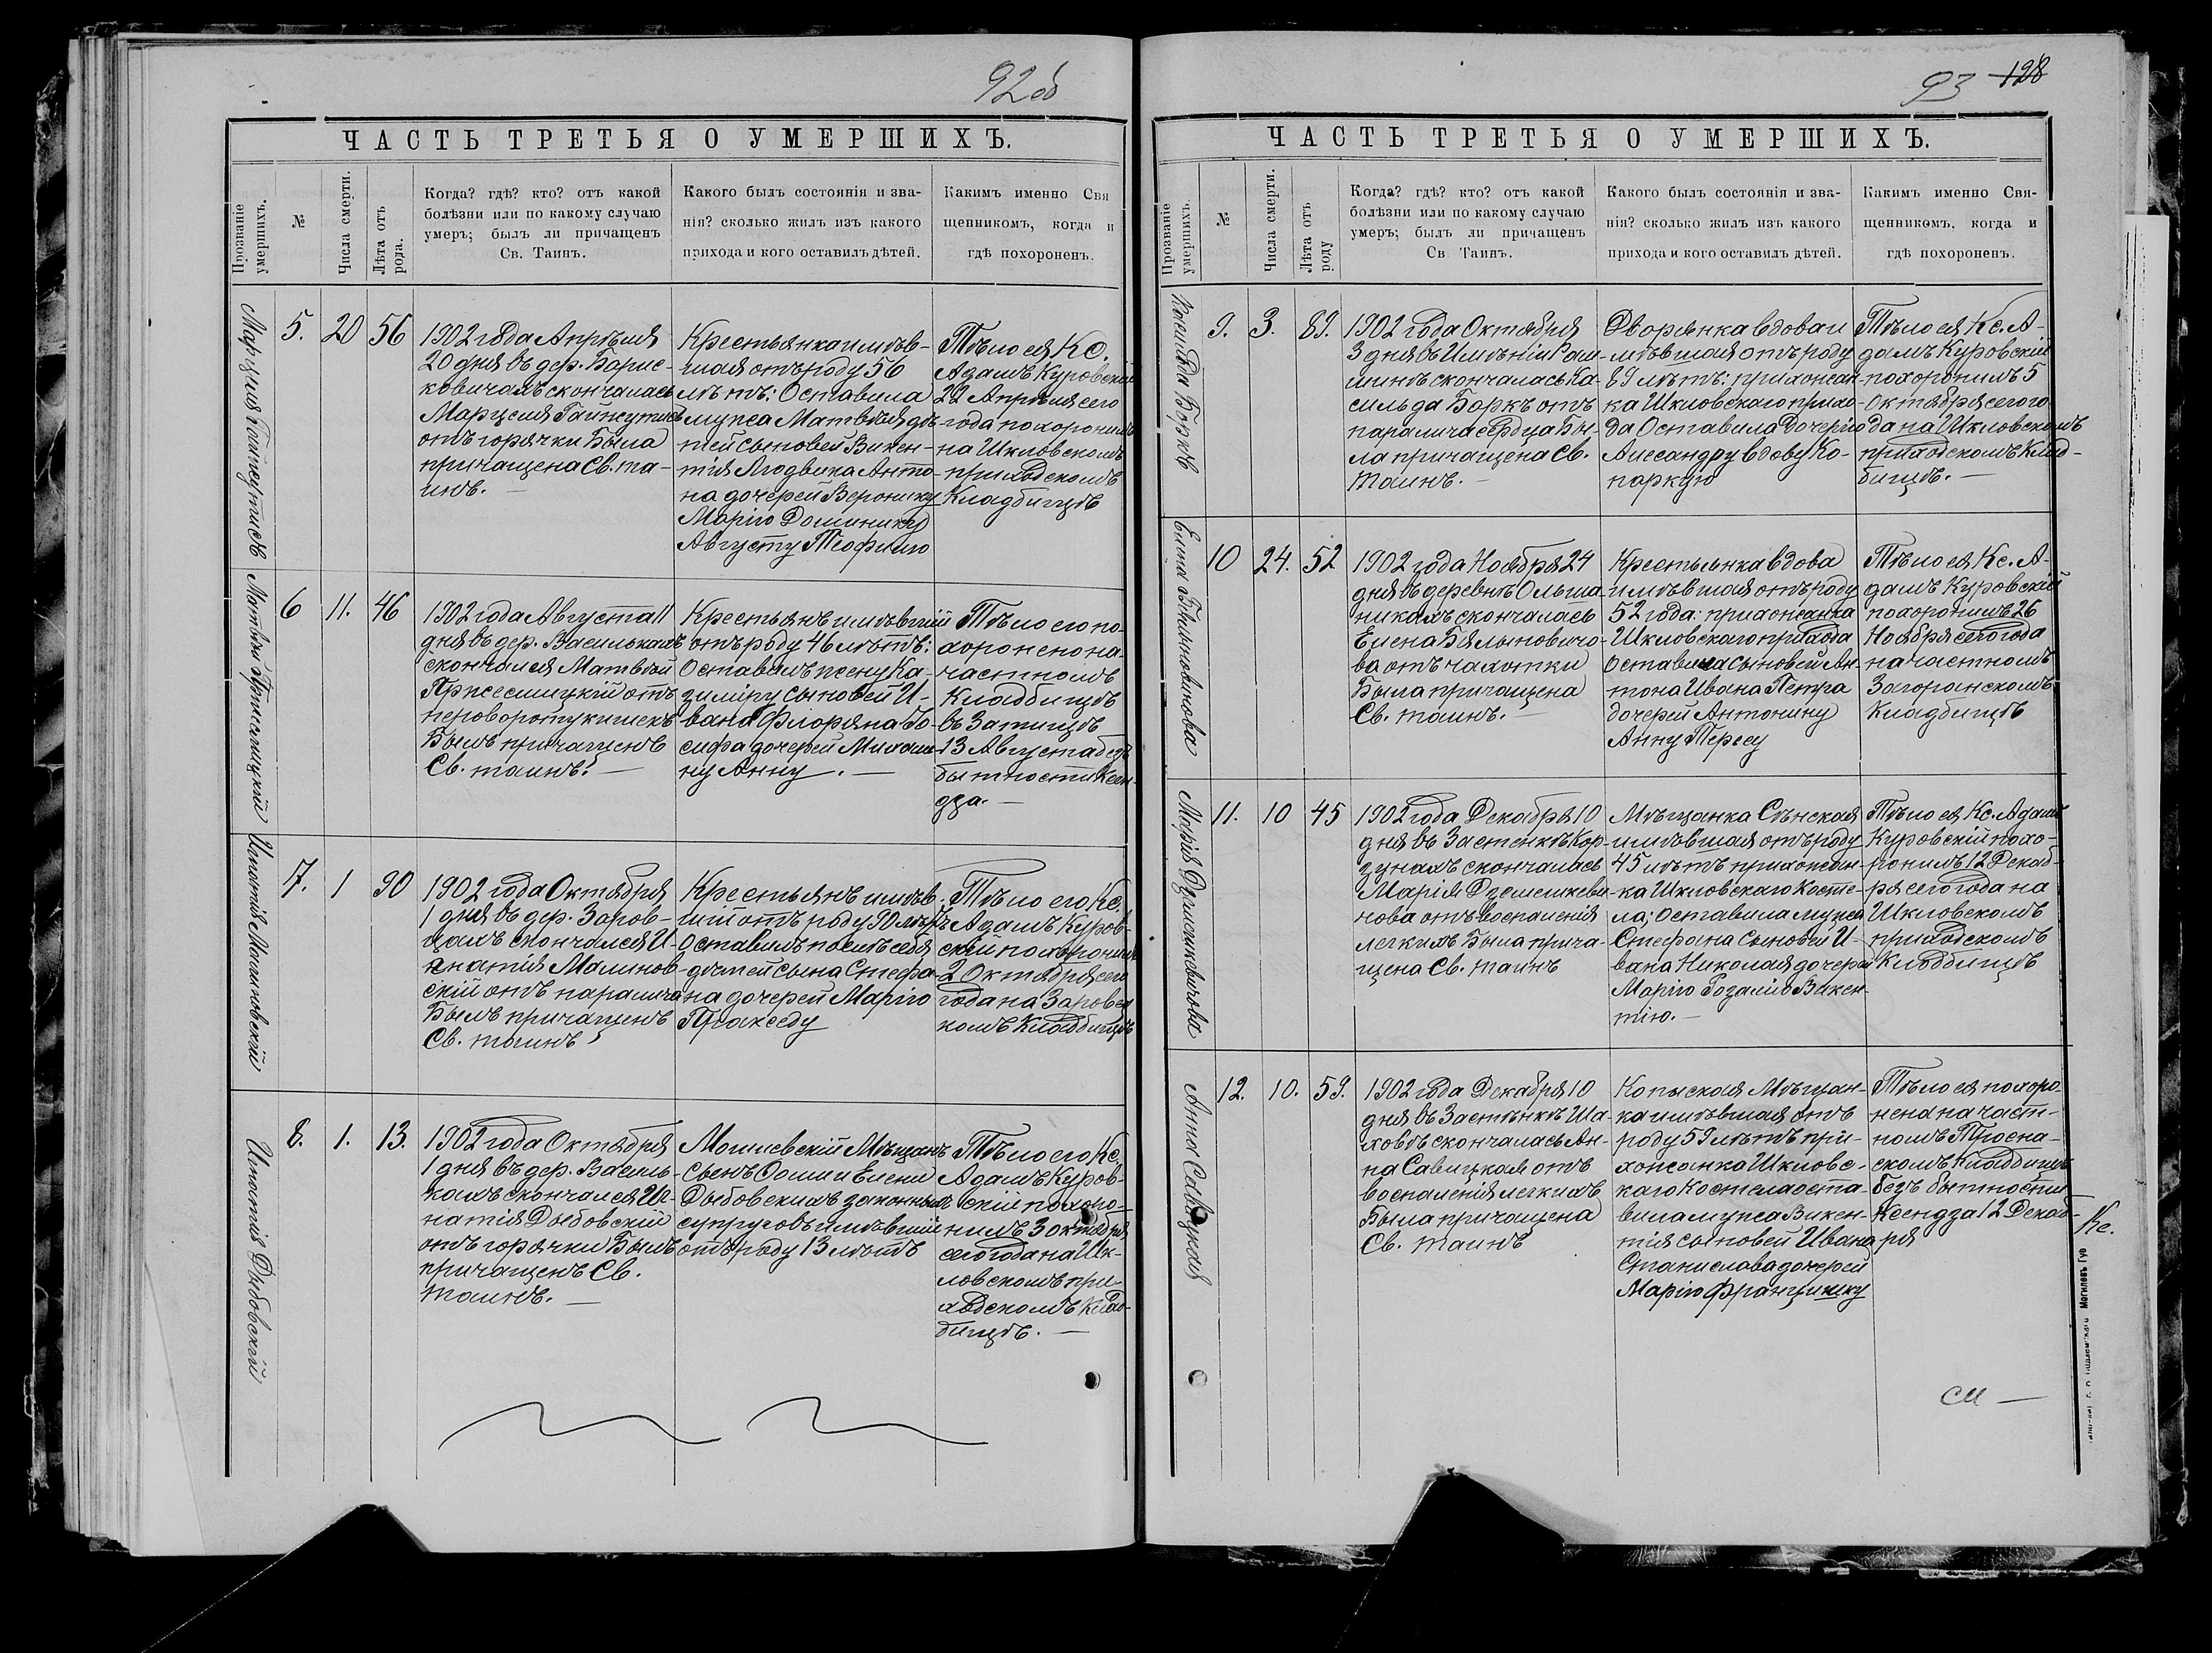 92 об
ЧАСТЬ ТРЕТЬЯ О УМЕРШИХЪ.
Прозваніе
умершихъ.
№
Числа смерти.
Лѣта отъ
рода.
Когда? гдѣ? кто? отъ какой
болѣзни или по какому случаю
умеръ; былъ ли причащенъ
Св. Таинъ.
Какого былъ состоянія и зва-
нія? сколько жилъ изъ какого
прихода и кого оставилъ дѣтей.
Какимъ именно Свя
щенникомъ, когда и
гдѣ похороненъ.
5.
20
56
1902 года Апрѣля
20 дня въ дер. Борис-
ковичахъ скончалась
Марцеля Гайжутись
отъ горячки Была
причащена Св. та-
инъ. —
Крестьянка имѣв-
шая отъ роду 56
лѣтъ: Оставила
мужа Матвѣя дѣ-
тей сыновей Викен-
тія Людвика Анто-
на дочерей Веронику
Марію Доминику
Августу Теофилю
Тѣло ея Кс.
Адамъ Куровскій
22 Апрѣля сего
года похоронилъ
на Шкловскомъ
приходскомъ
Кладбищѣ
6
11.
46
Матвѣй
1902 года Августа 11
дня въ дер. Василькахъ
скончался Матвѣй
Пржесмицкій отъ
переворотукишекъ
Былъ причащенъ
Св. таинъ. —
Крестьянъ имѣвшій
отъ роду 46 лѣтъ:
Оставилъ жену Ка-
зиміру сыновей И-
вана Флоріяна Іо-
сифа дочерей Михали-
ну Анну. —
Тѣло его по-
хоронено на
частномъ
Кладбищѣ
въ Затищѣ
13 Августа безъ
бытности Ксен-
дза. —
Игнатія Малиновскій
7.
1
90
1902 года Октября
1 дня въ дер. Заров-
цахъ скончался И-
гнатія Малинов-
скій отъ паралича
Былъ причащенъ
Св. таинъ
Крестьянъ имѣв-
шій отъ роду 90 лѣтъ
Оставилъ послѣ себя
дѣтей сына Стефа-
на дочерей Марію
Праксед​у
Тѣло его Кс.
Адамъ Куров-
скій похоронилъ
2 Октября сего
года на Заровец
комъ Кладбищѣ
Игнатія Дыбовскій
8.
1.
13.
1902 года Октября
1 дня въ дер. Василь-
кахъ скончался Иг-
натія Дыбовскій
отъ горячки Былъ
причащенъ Св.
таинъ. —
Могилевскій Мѣщанъ
Сынъ Осипа и Елены
Дыбовскихъ законныхъ
супруговъ имѣвшій
отъ роду 13 лѣтъ
Тѣло его Кс.
Адамъ Куров-
скій похоро-
нилъ 3 октября
сего года на Шк-
ловскомъ при-
ходскомъ Клад-
бищѣ. —
93 128
ЧАСТЬ ТРЕТЬЯ О УМЕРШИХЪ.
Прозваніе
умершихъ.
№
Числа смерти.
Лѣта отъ
роду
Когда? гдѣ? кто? отъ какой
болѣзни или по какому случаю
умеръ; былъ ли причащенъ
Св Таинъ.
Какого былъ состоянія и зва-
нія? сколько жилъ изъ какого
прихода и кого оставилъ дѣтей.
Какимъ именно Свя-
щенникомъ, когда и
гдѣ похороненъ.
9.
3.
89.
1902 года Октября
3 дня въ Имѣніи
скончалась Ка-
сильда Боркъ отъ
паралича сердца Бы-
ла причащена Св.
Таинъ. —
Дворянка вдова и
мѣвшая отъ роду
89 лѣтъ: прихожан-
ка Шкловскаго прихо-
да Оставила дочерь
Алесандру вдову Ко-
Тѣло ея Кс. А-
дамъ Куровскій
похоронилъ 5
Октября сего го
да на Шкловскомъ
приходскомъ Клад-
бищѣ. —
10
24.
52
1902 года Ноября 24
дня въ деревнѣ Ольша-
никахъ скончалась
Елена Бялыновичо-
ва отъ чахотки
Была причащена
Св. таинъ. —
Крестьянка вдова
имѣвшая отъ роду
52 года: прихожанка
Шкловскаго прихода
Оставила сыновей Ан-
тона Ивана Петра
дочерей Антонину
Анну Тересу
Тѣло ея Кс. А-
дамъ Куровскій
похоронилъ 26
Ноября сего года
на частномъ
Загоранскомъ
Кладбищѣ
11.
10
45
1902 года Декабря 10
дня въ Застенкѣ Кор-
зунахъ скончалась
Марія Дземешкеви-
чова отъ воспаленія
легкихъ Была прича-
щена Св. таинъ
Мѣщанка Сѣнская
имѣвшая отъ роду
45 лѣтъ прихожан-
ка Шкловскаго Косте-
ла; Оставила мужа
Стефана Сыновей И-
вана Николая дочерей
Марію Розалію Викен-
тію. —
Тѣло ея Кс. Адамъ
Куровскій похо-
ронилъ 12 Декаб-
ря сего года на
Шкловскомъ
приходскомъ
Кладбищѣ
Анна Савицкая
12.
10.
59.
1902 года Декабря 10
дня въ Застѣнкѣ Ша-
ховѣ скончалась Ан-
на Савицкая отъ
воспаленія легкихъ
Была причащена
Св. таинъ
Копыская Мѣщан-
ка имѣвшая отъ
роду 59 лѣтъ при-
хожанка Шкловс-
каго Костела оста-
вила мужа Викен-
тія сыновей Ивана
Станислава дочерей
Марію Францишку
Тѣло ея похоро-
нена на част-
номъ Троена-
скомъ Кладбищѣ
безъ бытности
Ксендза 12 Декаб-
ря
Кс.
Могилевъ Губ